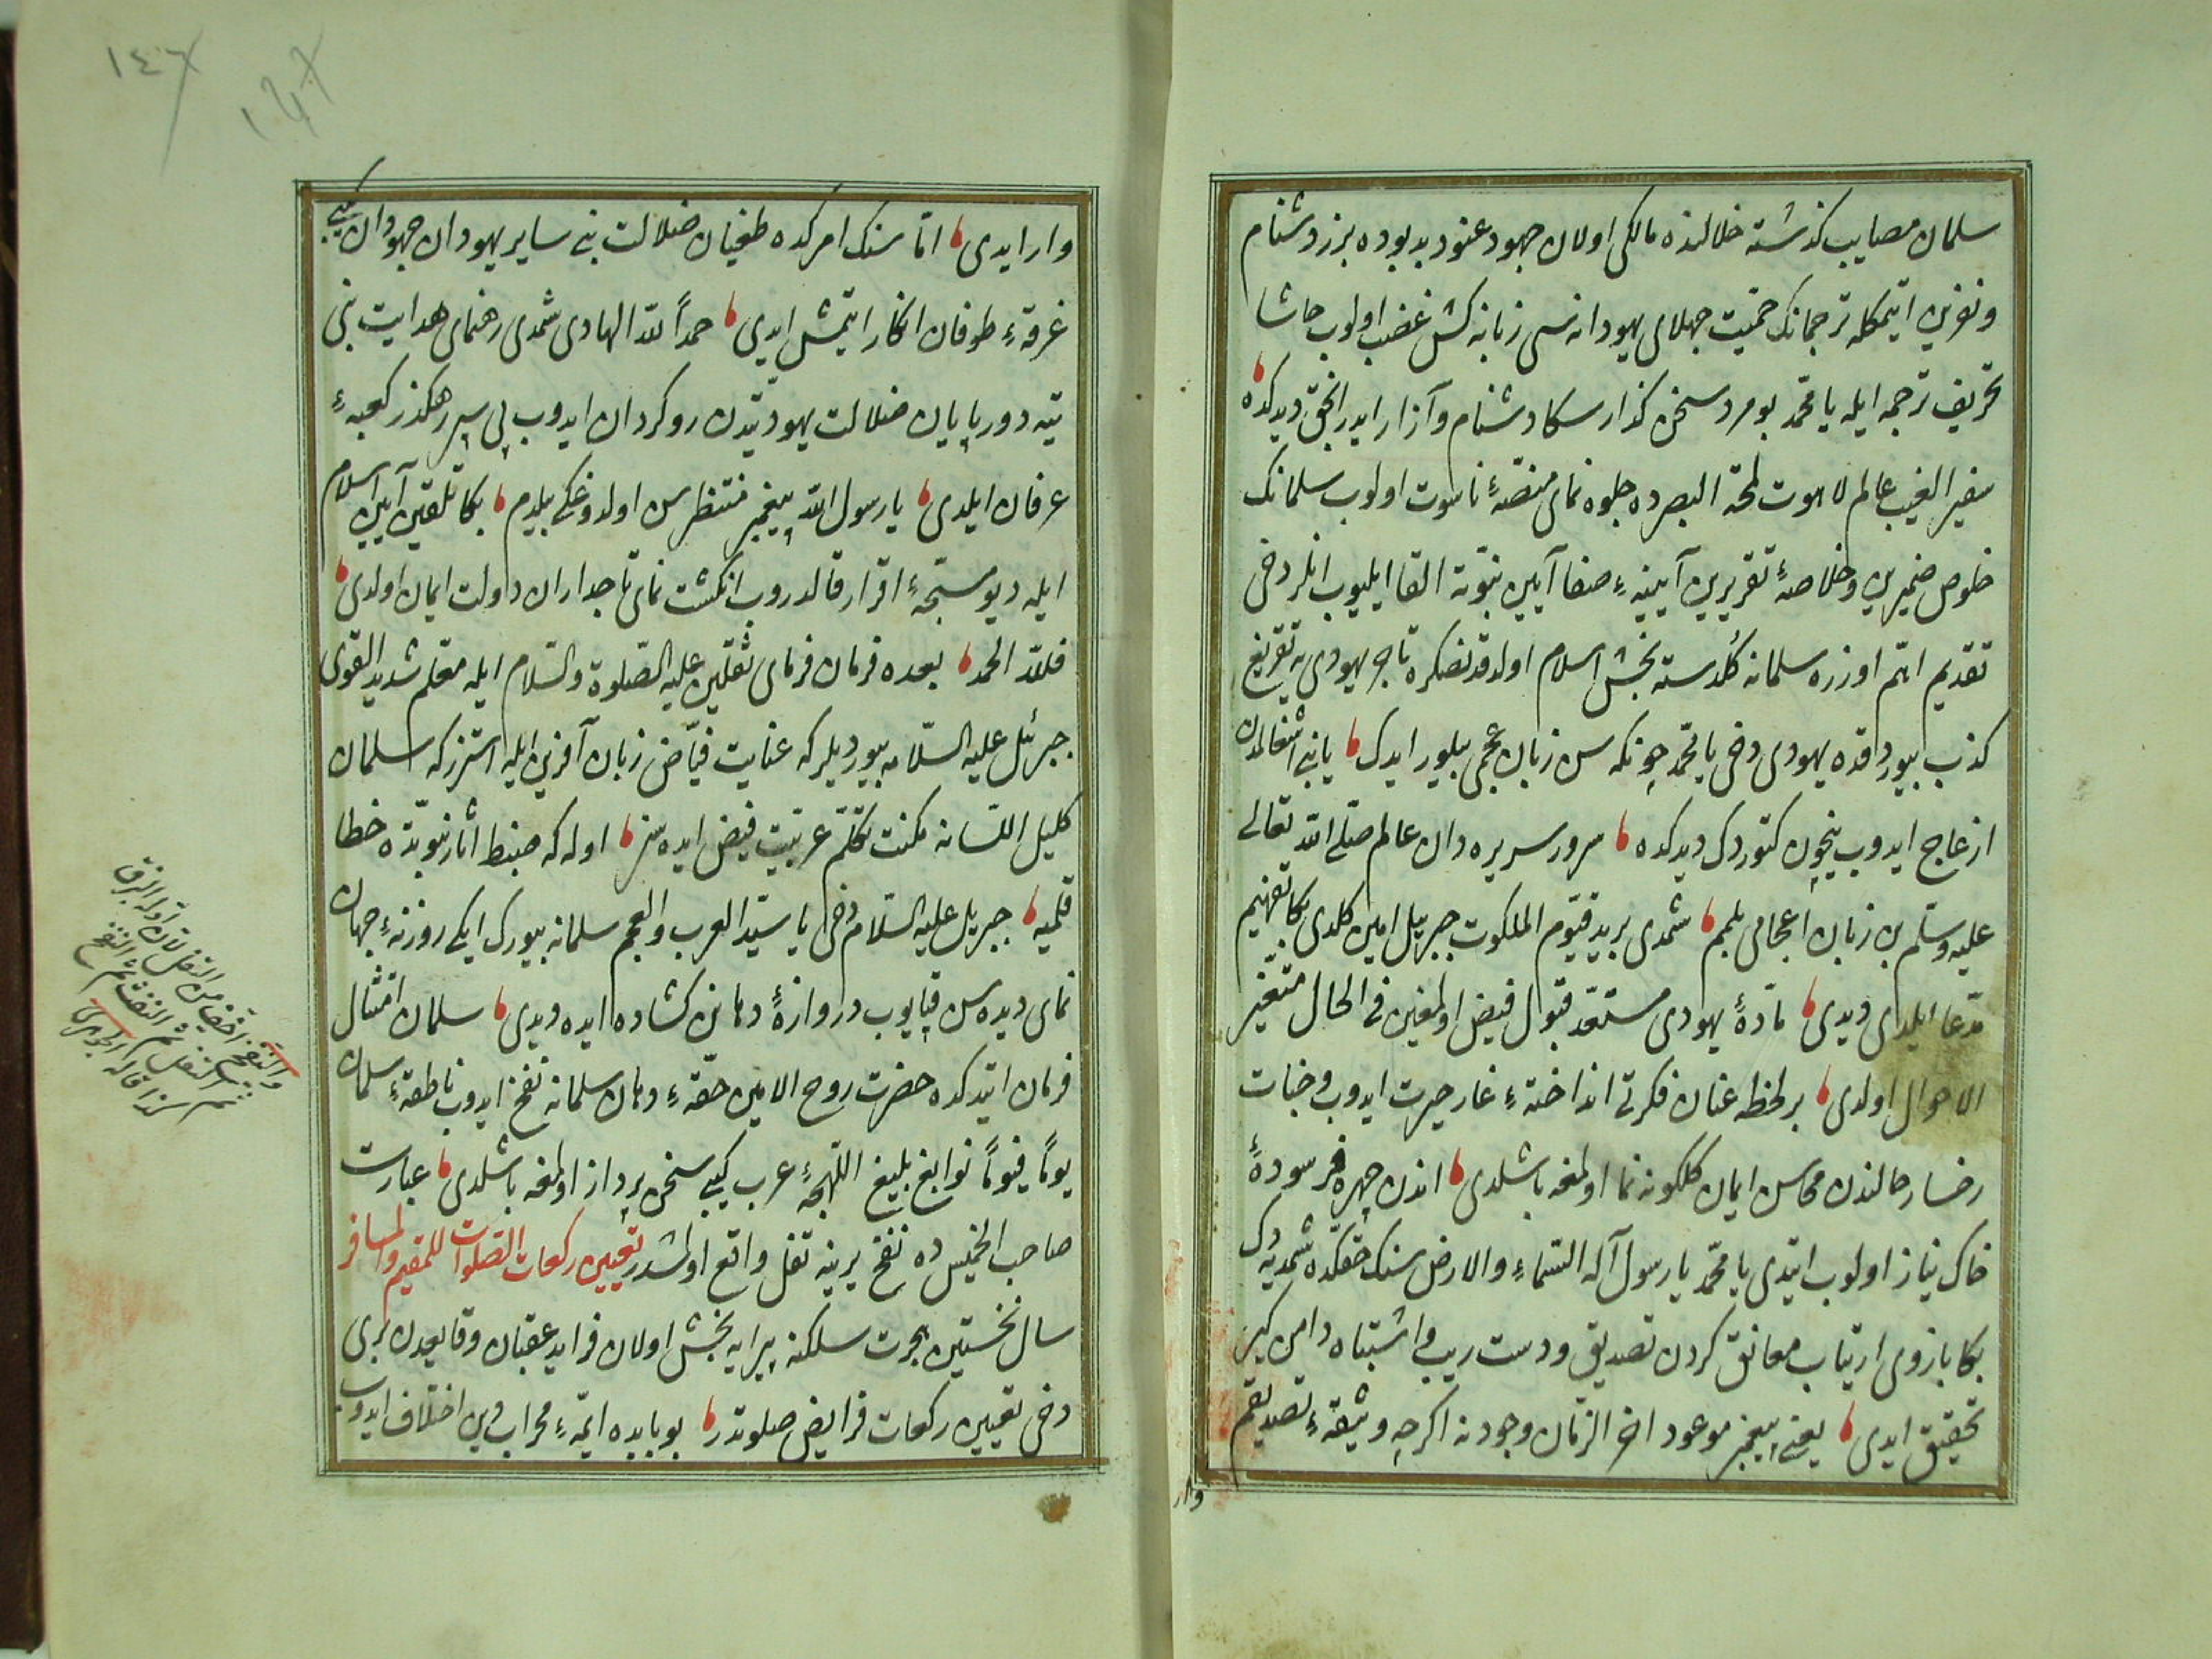 سلمان مصایب کذشته خلالنده مالکی اولان جهود عنود بدبوده برز دشنام
ونفرین ایتمکله ترجمانک حمیت جهلای یهودانه سی زبانه کش غضب اولوب حاشا
تحریف ترجمه ایله یا محمّد بو مرد سخن کذار سکا دشنام وآزار ایدر انجق دیدکده
سفیر الغیب عالم لاهوت لمحة البصرده جلوه نمای منصّهٔ ناسوت اولوب سلمانک
خلوص ضمیرین وخلاصهٔ تقریرین آیینهٔ صفا آیین نبوّته القا ایلیوب انلر دخی
تقدیم اتم اوزره سلمانه کلدسته بخش اسلام اولدقدنصکره تاجر یهودی یه تقریع
کذب بیوردقده یهودی دخی یا محمّد چونکه سن زبان عجمی بیلور ایدک یا نی اشغالمدن
ازعاج ایدوب نیچون کتوردک دیدکده سرور سریره دان عالم صلّی الله تعالی
علیه وسلّم بن زبان اعجامی بلمم شمدی برید قیّوم الملکوت جبریل امین کلدی بکا تفهیم
مدّعا ایلدی دیدی مادّهٔ یهودی مستعد قبول فیض اولمغین فی الحال متغیّر
الاحوال اولدی بر لحظه عنان فکرتی انداختهٔ غار حیرت ایدوب وجنات
رخسار حالندن محاسن ایمان کلکونه نما اولمغه باشلدی اندن چهره فرسودهٔ
خاک نیاز اولوب ایتدی یا محمّد یا رسول آله السّماء والارض سنک حقکده شمدیه دک
بکا بازوی ارتیاب معانق کردن تصدیق ودست ریب واشتباه دامن کیر
تحقیق ایدی یعنی پیغمبر موعود اخر الزّمان وجودنه اکرچه وثیقهٔ تصدیقم
وار
وار ایدی امّا سنک امرکده طغیان ضلالت بنی سایر یهودان جهودان کبی
غرقهٔ طوفان انکار ایتمش ایدی حمداً لله الهادی شمدی رهنمای هدایت بنی
تیه دور پایان ضلالت یهودیّتدن روکردان ایدوب پی سپر رهکذر کعبهٔ
عرفان ایلدی یا رسول الله پیغمبر منتظر سن اولدوغکی بیلدم بکا تلقین آیین اسلام
ایله دیو مسبّحهٔ اقرار قالدروب انکشت نمای تاجداران دولت ایمان اولدی
فلله الحمد بعده فرمان فرمای ثقلین علیه الصّلوة والسّلام ایله معلّم شدید القوی
جبرئیل علیه السّلامه بیوردیلر که عنایت فیّاض زبان آفرین ایله استرز که سلمان
کلیل اللسانه مکنت تکلّم عربیّت فیض ایده سز اوله که ضبط اثار نبویّده خطا
قلمیه جبریل علیه السّلام دخی یا سیّد العرب والعجم سلمانه بیورک ایکی روزنهٔ جهان
نمای دیده سن قپایوب دروازهٔ دهانن کشاده ایده دیدی سلمان امتثال
فرمان ایتدکده حضرت روح الامین حقّهٔ دهان سلمانه نفخ ایدوب ناطقهٔ سلمان
یوماً فیوماً نوابغ بلیغ اللهجهٔ عرب کبی سخن پرداز اولمغه باشلدی عبارت
صاحب الخمیس ده نفخ یرینه تفل واقع اولمشدر تعیین رکعات الصّلوات للمقیم والمسافر
سال نخستین هجرت سلکنه پیرایه بخش اولان فراید عقبان وقایعدن بری
دخی تعیین رکعات فرایض صلوتدر بو بابده ائمّهٔ محراب دین اختلاف ایدوب
والنفخ اخف من التفل لان اوله البزق
ثم التفل ثم النفث ثم النفخ
کذا قاله الجوهری
١٤٦
١٤٦